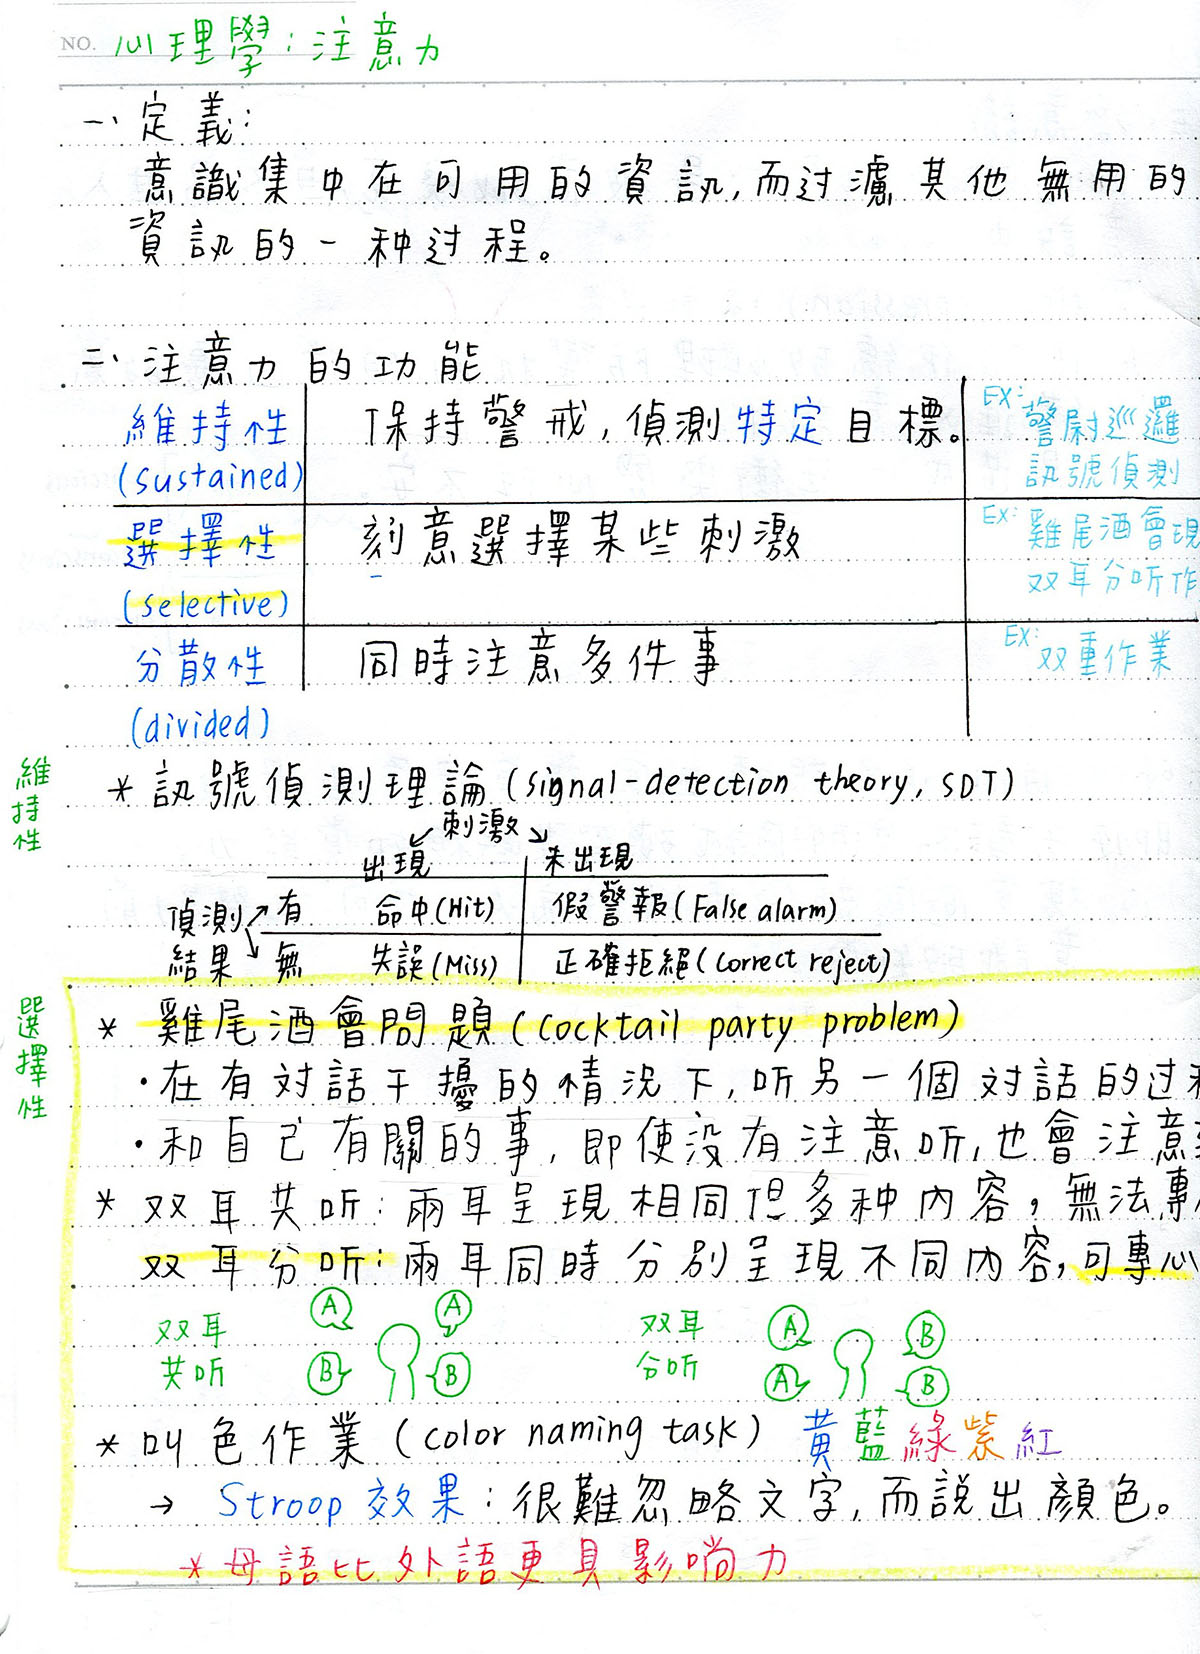 NO. 心理學:注意力
一、定義:
意識集中在可用的資訊,而过濾其他無用的
資訊的一种过程。
二、注意力的功能
維持性 保持警戒,偵測特定目標。 EX: 警尉巡邏
(sustained) 訊號偵測
選擇性 刻意選擇某些刺激 EX: 雞尾酒會現
(selective) 双耳分听作
分散性 同時注意多件事 EX: 双重作業
(divided)
維持性
* 訊號偵測理論(signal-detection theory, SDT)
刺激
出現 未出現
偵測 有 命中(Hit) 假警報(False alarm)
結果 無 失誤(Miss) 正確拒絕(correct reject)
選擇性
* 雞尾酒會問題(cocktail party problem)
·在有對話干擾的情況下,听另一個對話的过
·和自己有關的事,即使没有注意听,也會注意
* 双耳共听:兩耳呈現相同但多种內容,無法專
双耳分听:兩耳同時分別呈現不同內容,可專心
双耳 A A 双耳 A B
共听 B B 分听 A B
* 叫色作業(color naming task) 黄藍綠紫紅
→ Stroop效果:很難忽略文字,而説出顏色。
*母語比外語更具影响力